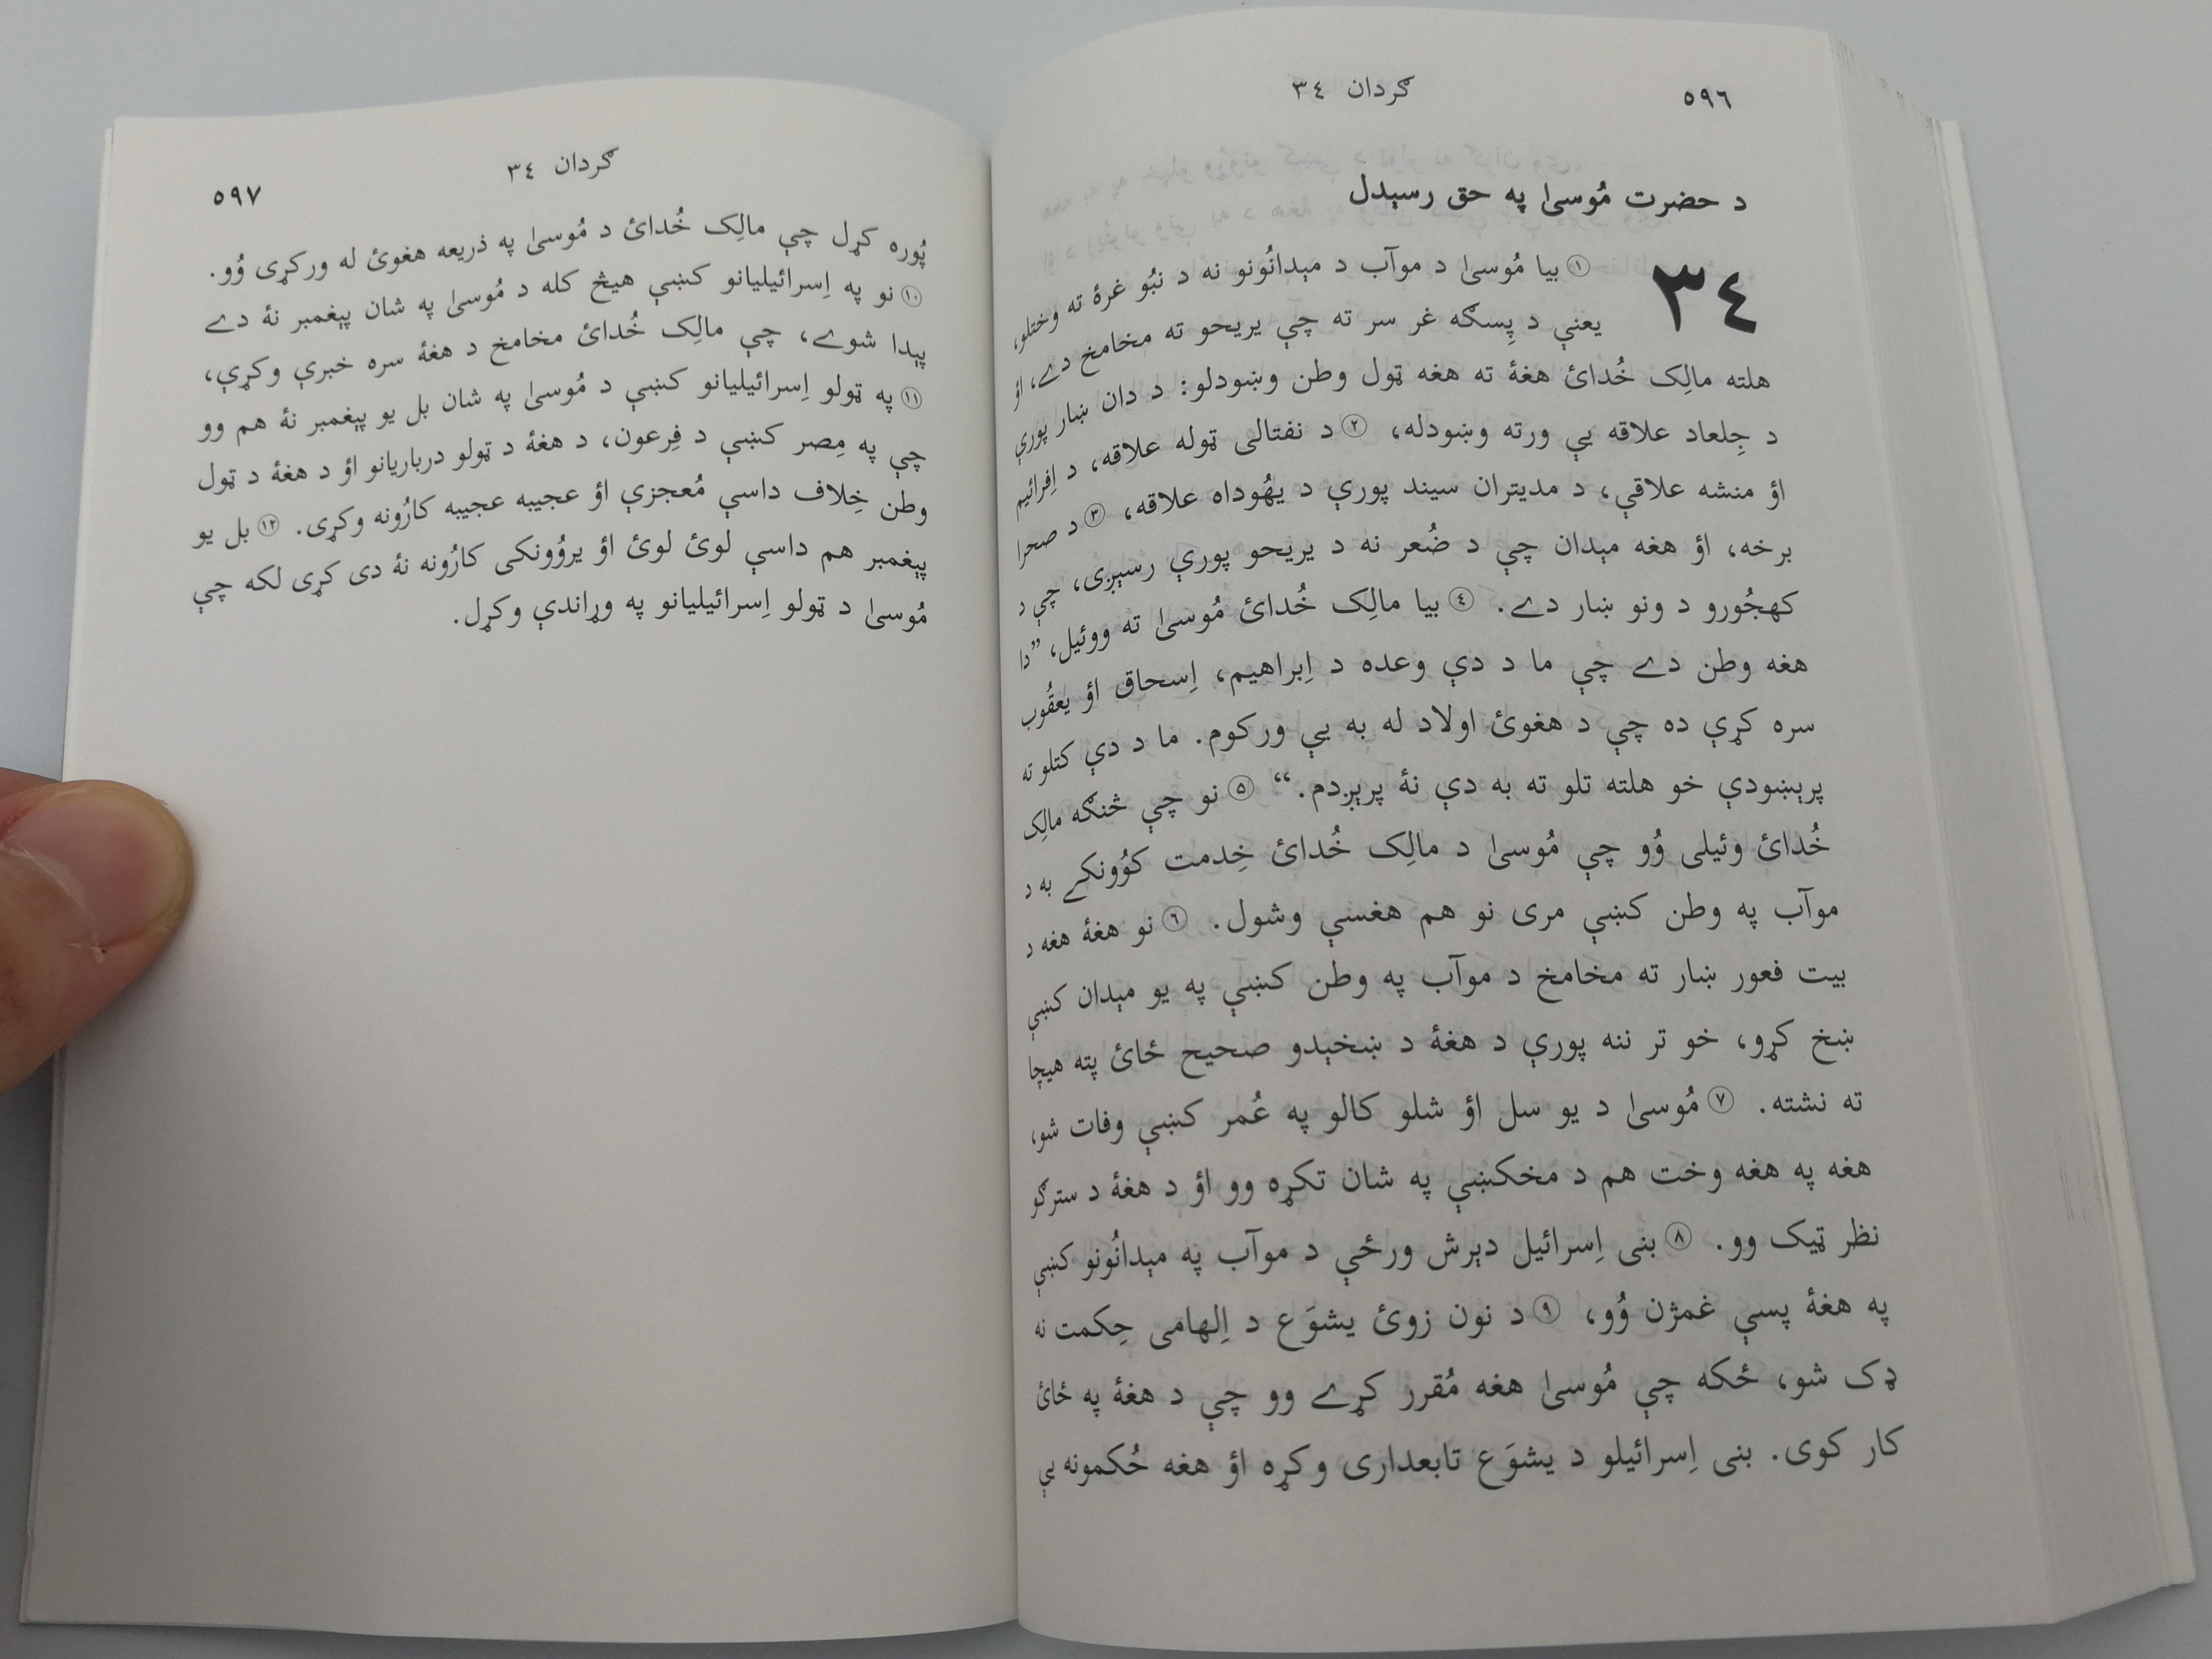 ٥٩٦
ګردان ٣٤
د حضرت مُوسیٰ په حق رسېدل
٣٤
①بیا مُوسیٰ د موآب د مېدانُونو نه د نبُو غرۀ ته وختلو،
یعنې د پِسګه غر سر ته چې یریحو ته مخامخ دے، اؤ
هلته مالِک خُدائ هغۀ ته هغه ټول وطن وښودلو: د دان ښار پورې
د جِلعاد علاقه یې ورته وښودله، ②د نفتالی ټوله علاقه، د اِفرائیم
اؤ منشه علاقې، د مدیتران سیند پورې د یهُوداه علاقه، ③د صحرا
برخه، اؤ هغه مېدان چې د ضُعر نه د یریحو پورې رسېږی، چې د
کهجُورو د ونو ښار دے. ④بیا مالِک خُدائ مُوسیٰ ته ووئیل، ”دا
هغه وطن دے چې ما د دې وعده د اِبراهیم، اِسحاق اؤ یعقُوب
سره کړې ده چې د هغوئ اولاد له به یې ورکوم. ما د دې کتلو ته
پرېښودې خو هلته تلو ته به دې نۀ پرېږدم.“ ⑤نو چې څنګه مالِک
خُدائ وئیلی وُو چې مُوسیٰ د مالِک خُدائ خِدمت کوُونکے به د
موآب په وطن کښې مری نو هم هغسې وشول. ⑥نو هغۀ هغه د
بیت فعور ښار ته مخامخ د موآب په وطن کښې په یو مېدان کښې
ښخ کړو، خو تر ننه پورې د هغۀ د ښخېدو صحیح ځائ پته هیچا
ته نشته. ⑦مُوسیٰ د یو سل اؤ شلو کالو په عُمر کښې وفات شو،
هغه په هغه وخت هم د مخکښې په شان تکړه وو اؤ د هغۀ د سترګو
نظر ټیک وو. ⑧بنی اِسرائیل دېرش ورځې د موآب په مېدانُونو کښې
په هغۀ پسې غمژن وُو، ⑨د نون زوئ یشوَع د اِلهامی حِکمت نه
ډک شو، ځکه چې مُوسیٰ هغه مُقرر کړے وو چې د هغۀ په ځائ
کار کوی. بنی اِسرائیلو د یشوَع تابعداری وکړه اؤ هغه حُکمونه یې
ګردان ٣٤
٥٩٧
پُوره کړل چې مالِک خُدائ د مُوسیٰ په ذریعه هغوئ له ورکړی وُو.
⑩نو په اِسرائیلیانو کښې هیڅ کله د مُوسیٰ په شان پېغمبر نۀ دے
پېدا شوے، چې مالِک خُدائ مخامخ د هغۀ سره خبرې وکړې،
⑪په ټولو اِسرائیلیانو کښې د مُوسیٰ په شان بل یو پېغمبر نۀ هم وو
چې په مِصر کښې د فِرعون، د هغۀ د ټولو درباریانو اؤ د هغۀ د ټول
وطن خِلاف داسې مُعجزې اؤ عجیبه عجیبه کارُونه وکړی. ⑫بل یو
پېغمبر هم داسې لوئ لوئ اؤ یروُونکی کارُونه نۀ دی کړی لکه چې
مُوسیٰ د ټولو اِسرائیلیانو په وړاندې وکړل.